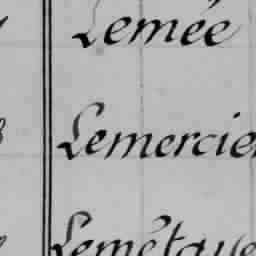 Lemée
Lemercier
Lemétaye